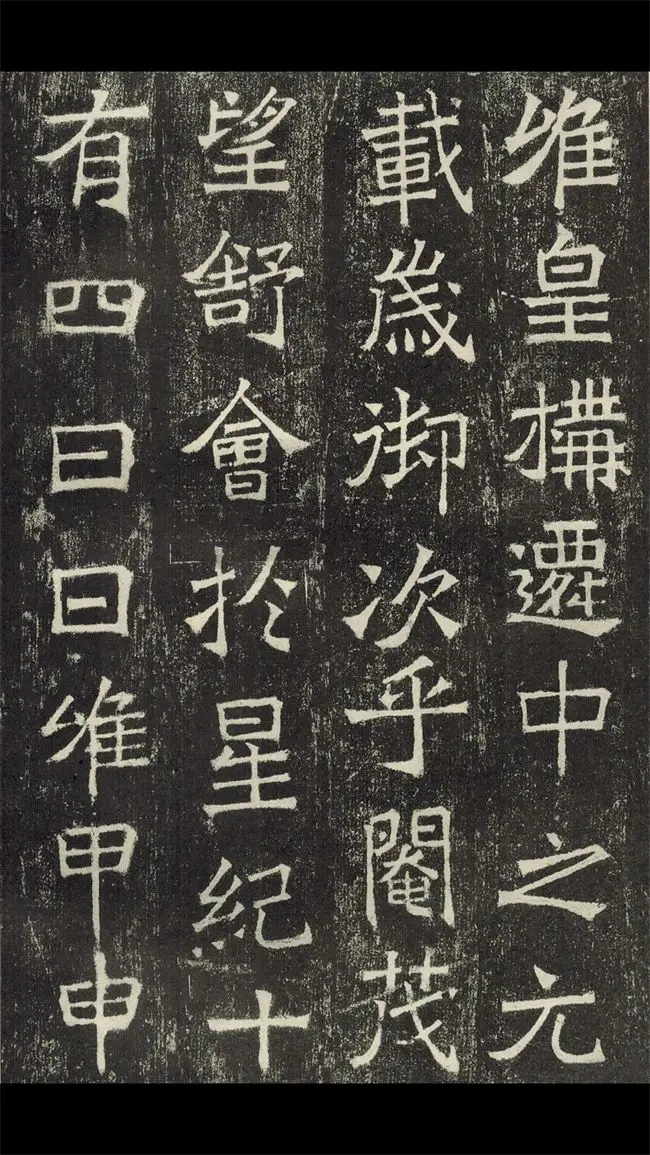 唯皇構遷中之元
載歲御次乎閹茂
望舒會於星紀十
有四日日唯甲申